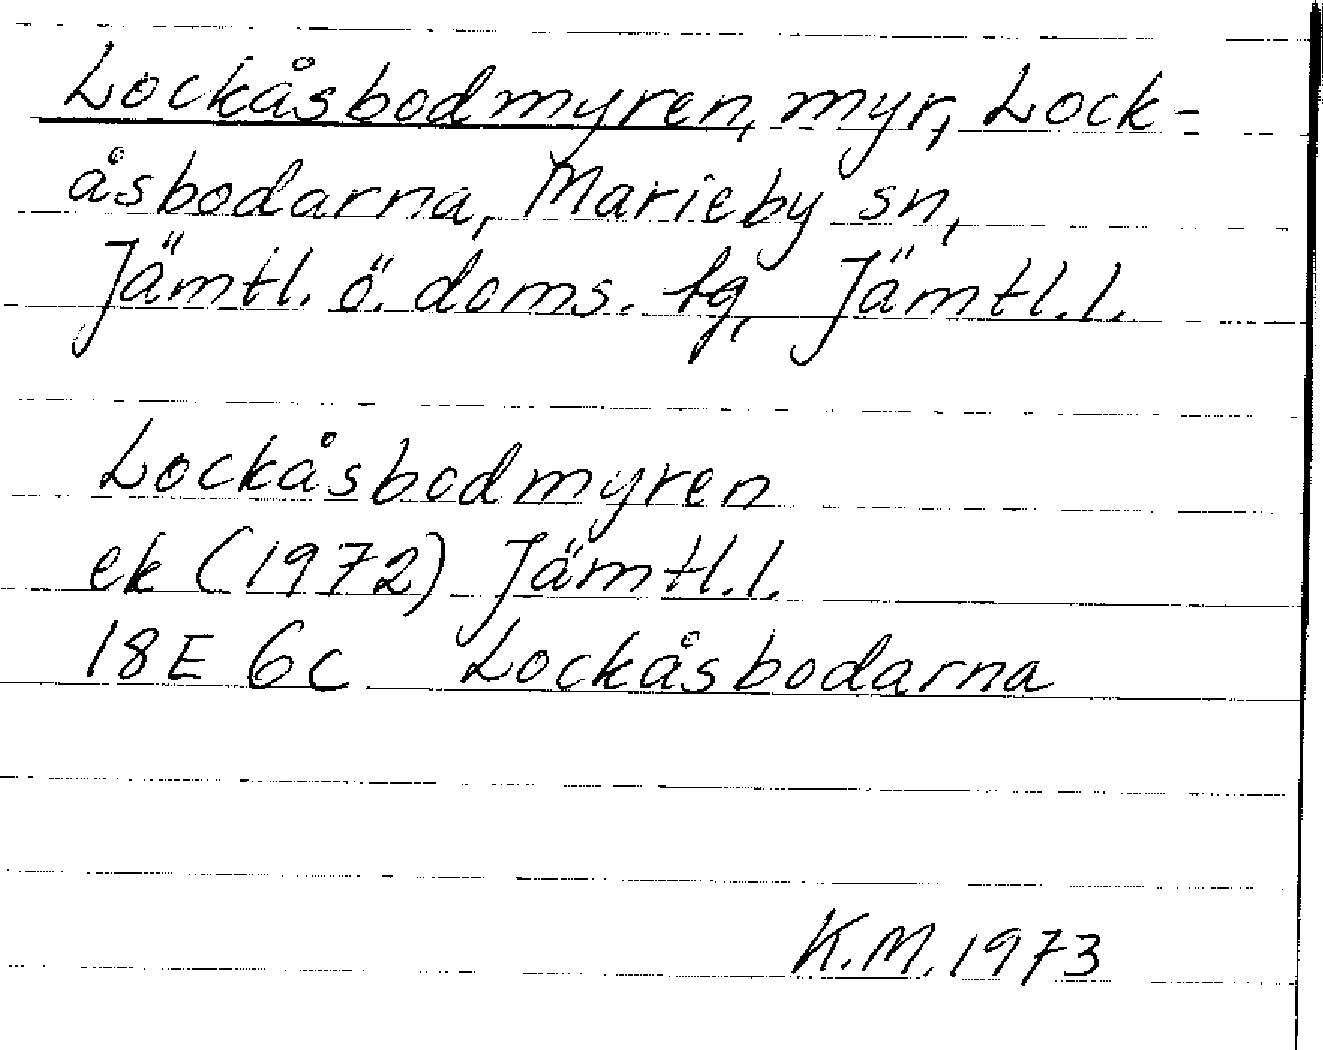 Lockåsbodmyren, myr, Lock-
åsbodarna, Marieby sn,
Jämtl. ö. doms. tg, Jämtl. l.
Lockåsbodmyren
ek (1972) Jämtl. l.
18E 6c Lockåsbodarna
K.M. 1973